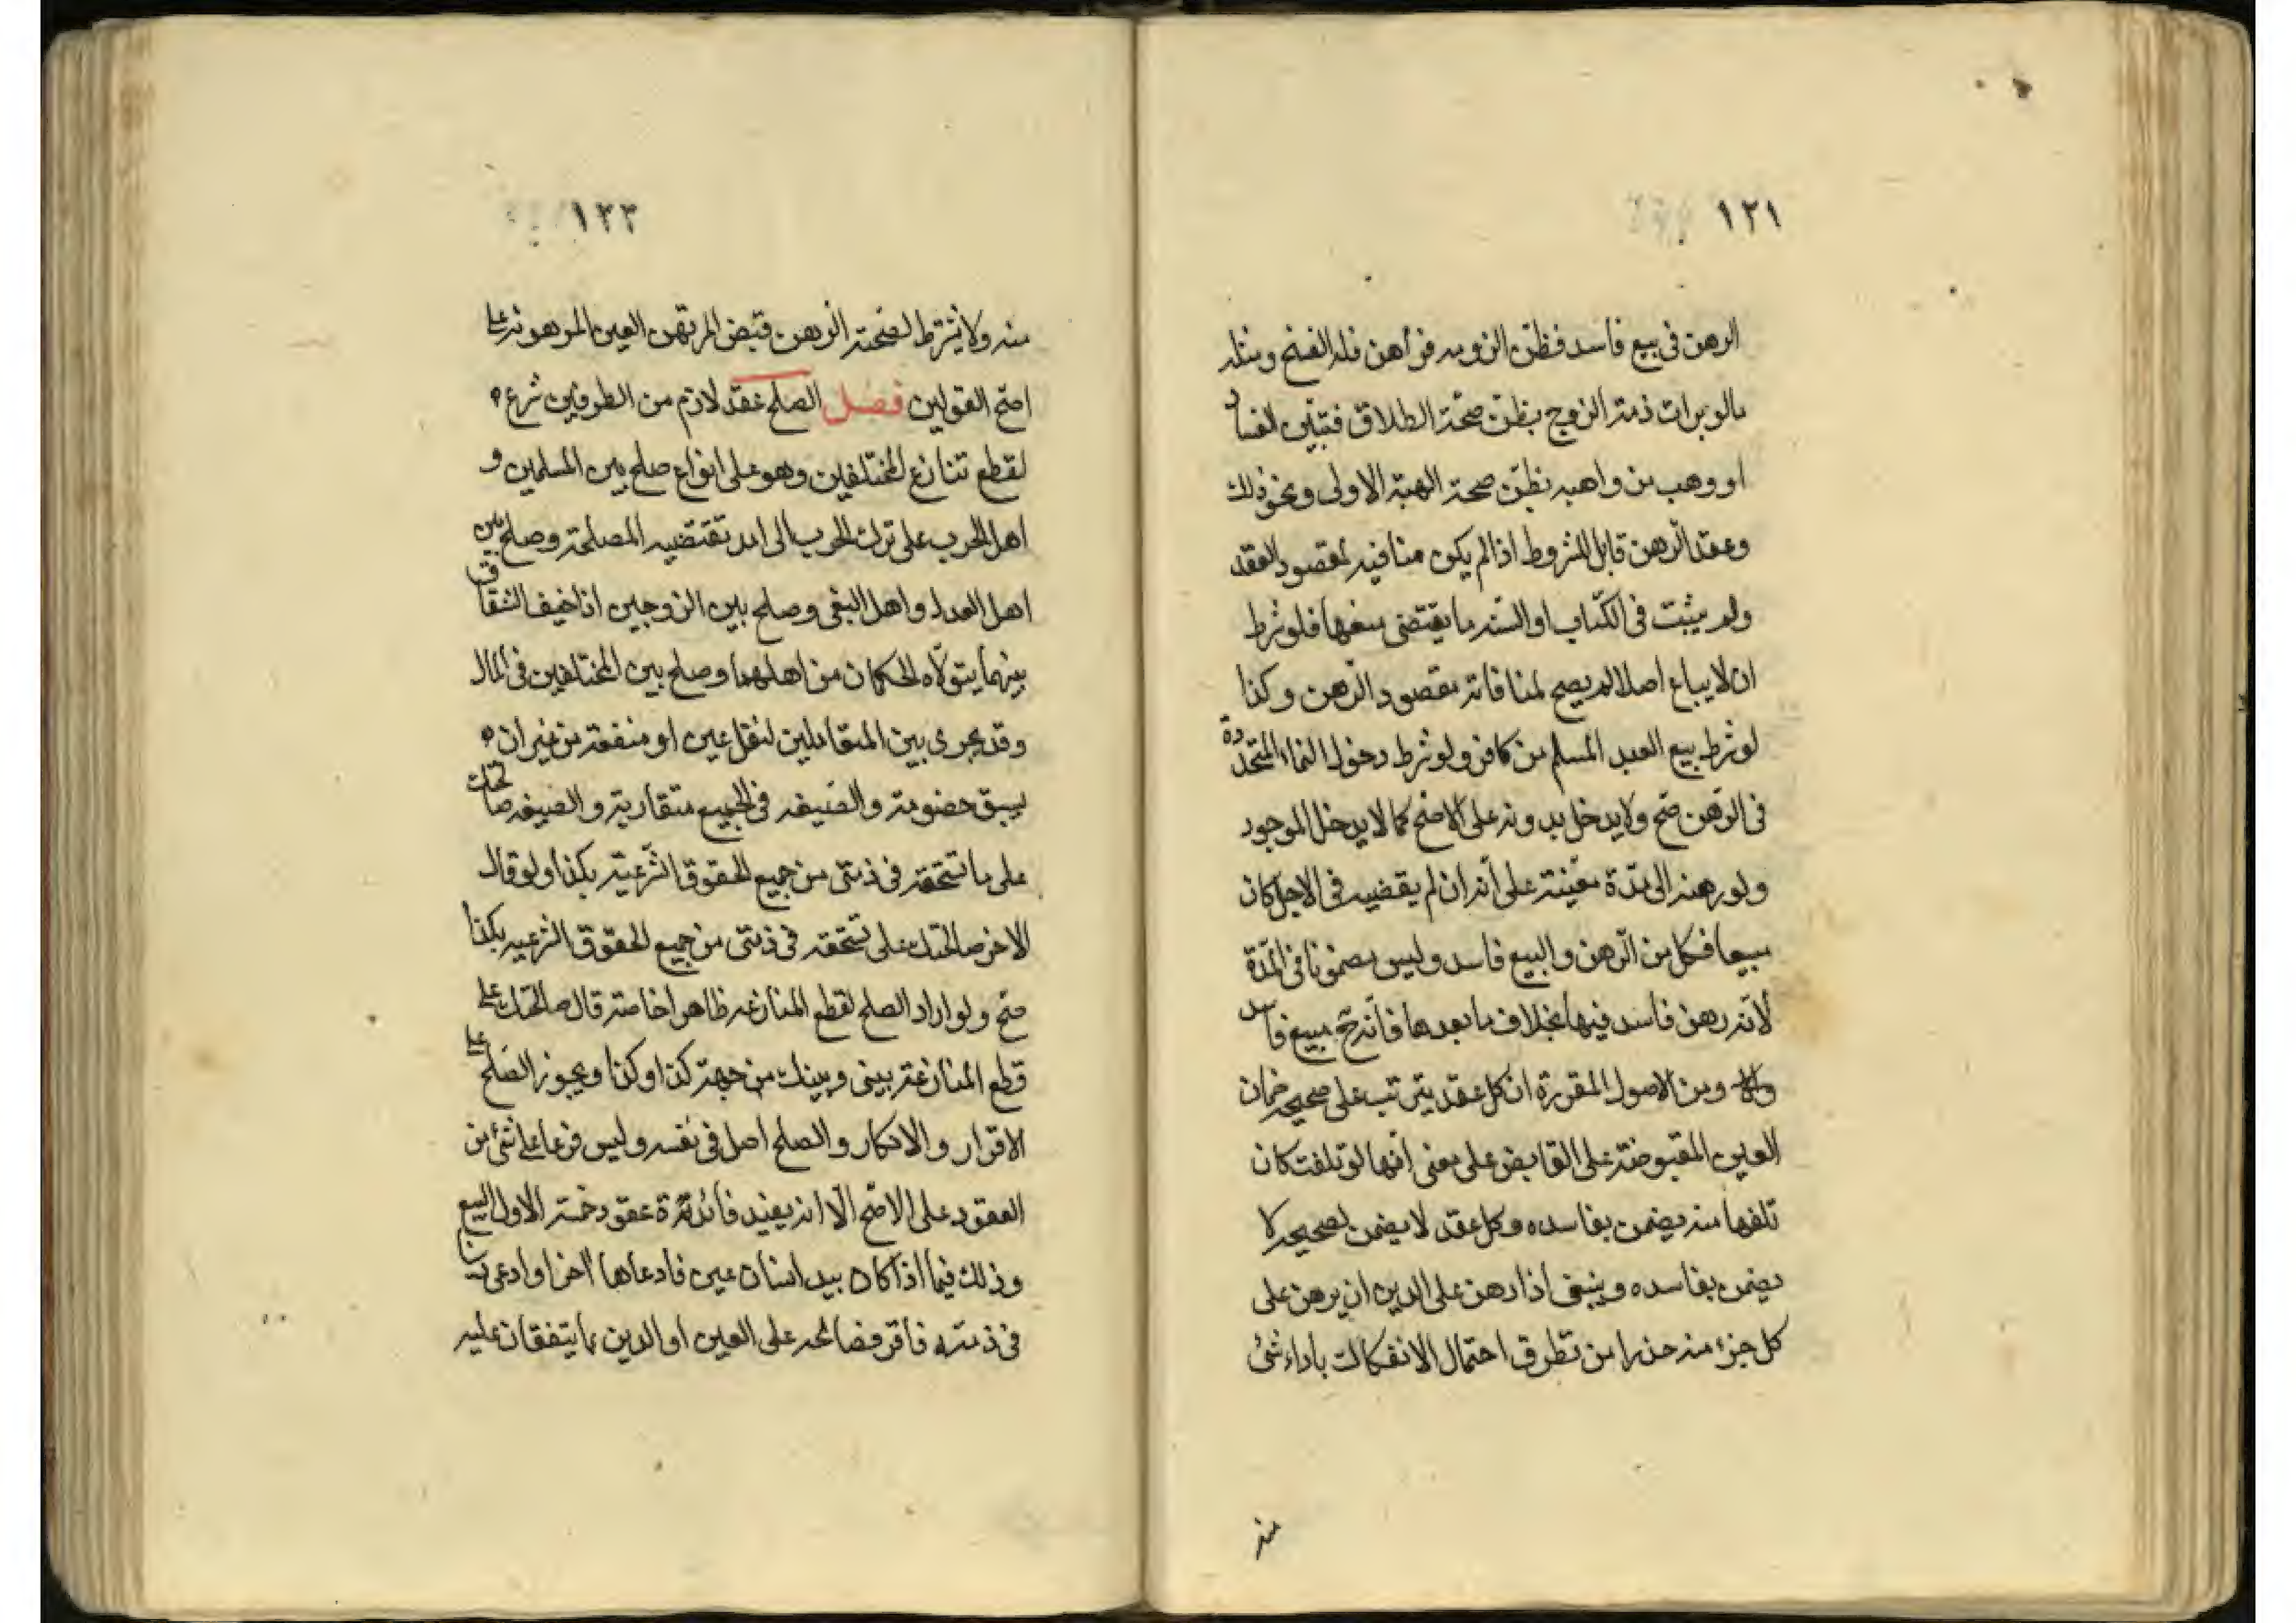 ١٢١
الرهن فى بيع فاسد فظن الزومه فرأهن فله الفسخ ومثله
مالو برات ذمة الزوج بظن صحة الطلاق فتبين الفساد
او وهب من واهبه بظن صحة الهبة الاولى ونحو ذلك
وعقد الرهن قابل للشروط اذا لم يكن منافيه لمقصود العقد
ولم يثبت فى الكتاب او السنه ما يقتضى منعها فلو شرط
ان لا يباع اصلا لم يصح لمنافاته مقصود الرهن وكذا
لو شرط بيع العبد المسلم من كافر ولو شرط دخول النماء المتجددة
فى الرهن صح ولا يدخل بدونه على الاصح كما لا يدخل الموجود
ولو رهنه الى مدة معينة على انه ان لم يقضيه فى الاجل كان
مبيعا فكل من الرهن والبيع فاسد وليس مضمونا فى المدة
لانه رهن فاسد فيها بخلاف ما بعدها فانه ح مبيع فاسد
ومن الاصول المقررة ان كل عقد يترتب على صحيحه ضمان
العين المقبوضة على القابض على معنى انها لو تلفت كان
تلفها منه يضمن بفاسده وكل عقد لا يضمن بصحيحه لا
يضمن بفاسده وينبغى اذا رهن على الدين ان يرهن على
كل جزء منه حذرا من تطرق احتمال الانفكاك باداء شئ
منه
١٢٢
منه ولا يشترط لصحة الرهن قبض المرتهن العين المرهونه على
اصح القولين فصل الصلح عقد لازم من الطرفين شرع
لقطع تنازع المختلفين وهو على انواع صلح بين المسلمين و
اهل الحرب على ترك الحرب الى امد تقتضيه المصلحة وصلح بين
اهل العدل واهل البغى وصلح بين الزوجين اذا خيف الشقاق
بينهما يتولاه الحكمان من اهلهما وصلح بين المختلفين فى المال
وقد يجرى بين المتقابلين لنقل عين او منفعة من غير ان
يسبق خصومة والصيغه فى الجميع متقاربة والصيغه صالحتك
على ما تستحقه فى ذمتى من جميع الحقوق الشرعيه بكذا ولو قال
الاخر صالحتك على تستحقه فى ذمتى من جميع الحقوق الشرعيه بكذا
صح ولو اراد الصلح لقطع المنازعه ظاهرا خاصة قال صالحتك على
قطع المنازعة بينى وبينك من جهة كذا وكذا ويجوز الصلح على
الاقرار والانكار والصلح اصل فى نفسه وليس فرعا على شئ من
العقود على الاصح الا انه يفيد فائدة عقود خمسة الاول البيع
وذلك فيما اذا كان بيد انسان عين فادعاها اخر او ادعى دينا
فى ذمته فاقر فصالحه على العين او الدين بما يتفقان عليه